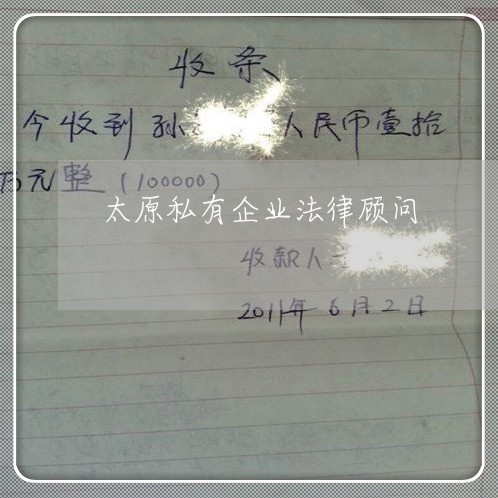 收条
今收到孙 人民币壹拾
万元整(100000)
太原私有企业法律顾问
收款人
2011年6月2日